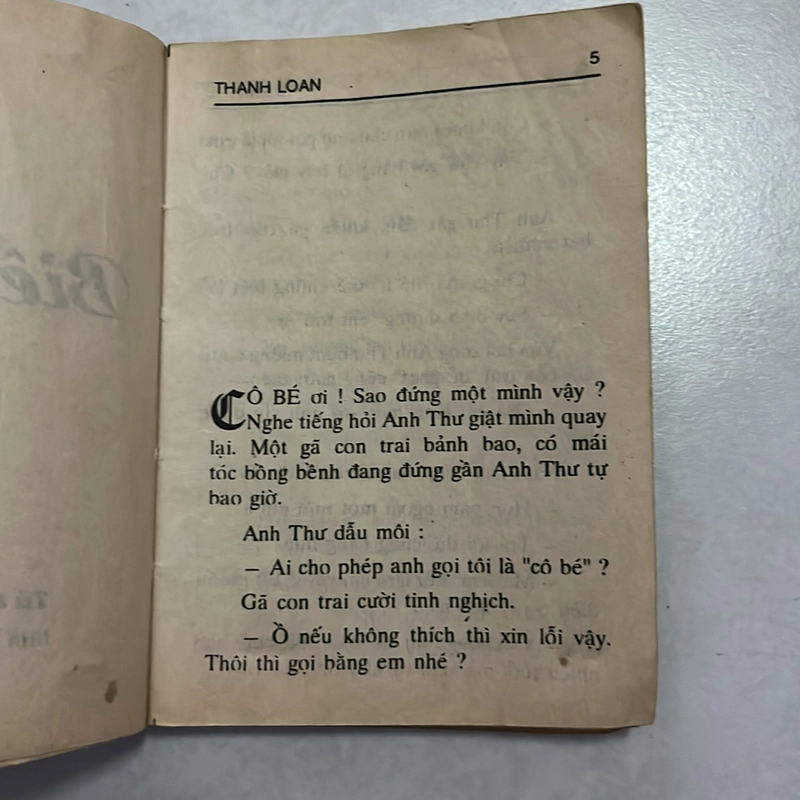 THANH LOAN 5
CÔ BÉ ơi ! Sao đứng một mình vậy ?
Nghe tiếng hỏi Anh Thư giật mình quay
lại. Một gã con trai bảnh bao, có mái
tóc bồng bềnh đang đứng gần Anh Thư tự
bao giờ.
Anh Thư dẫu môi :
– Ai cho phép anh gọi tôi là "cô bé" ?
Gã con trai cười tinh nghịch.
– Ồ nếu không thích thì xin lỗi vậy.
Thôi thì gọi bằng em nhé ?